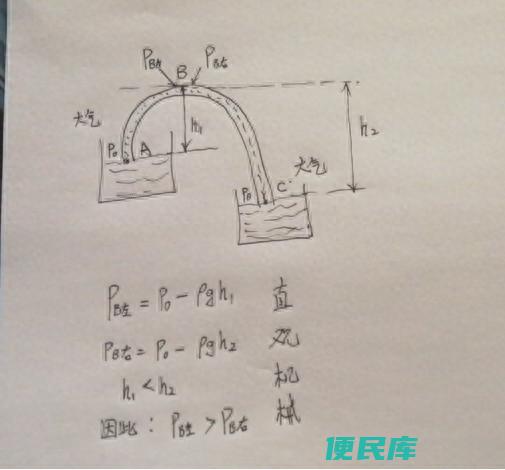 P_B左 B P_B右
大气 h₁ h₂
P₀ A 大气
P₀ C
P_B左 = P₀ - ρgh₁ 直
P_B右 = P₀ - ρgh₂ 观
h₁ < h₂ 机
因此: P_B左 > P_B右 械
便民库